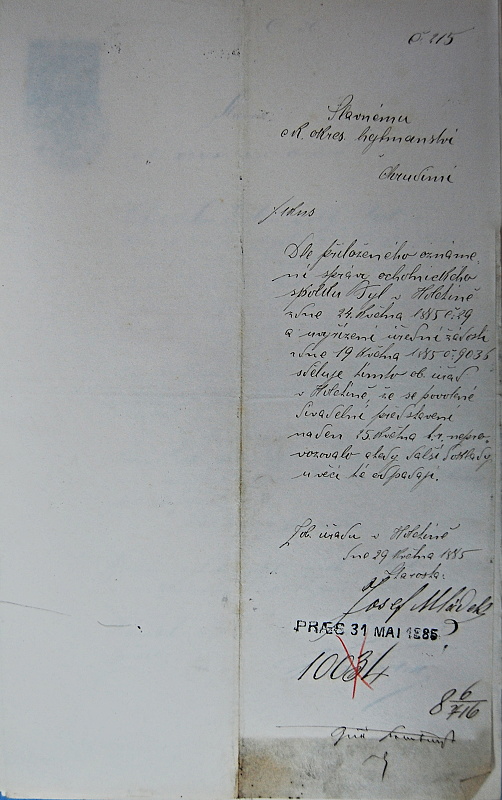 č. 215
Slavnému
c.k. okres. hejtmanství
Chrudimi
Dle přiloženého oznáme-
ní správy ochotnického
spolku Tyl v Holetíně
z dne 24. května 1885 č. 29
a vyřízení úřední žádosti
z dne 19 května 1885 č. 9036
sděluje tímto ob. úřad
v Holetíně, že se povolené
divadelní představení
na den 15. května t.r. nepro-
vozovalo a tedy další doklady
u věci té odpadají.
Z ob. úřadu v Holetíně
dne 29 května 1885
Starosta:
Josef Mládek
PRÆS 31 MAI 1885
10034
8 6/716